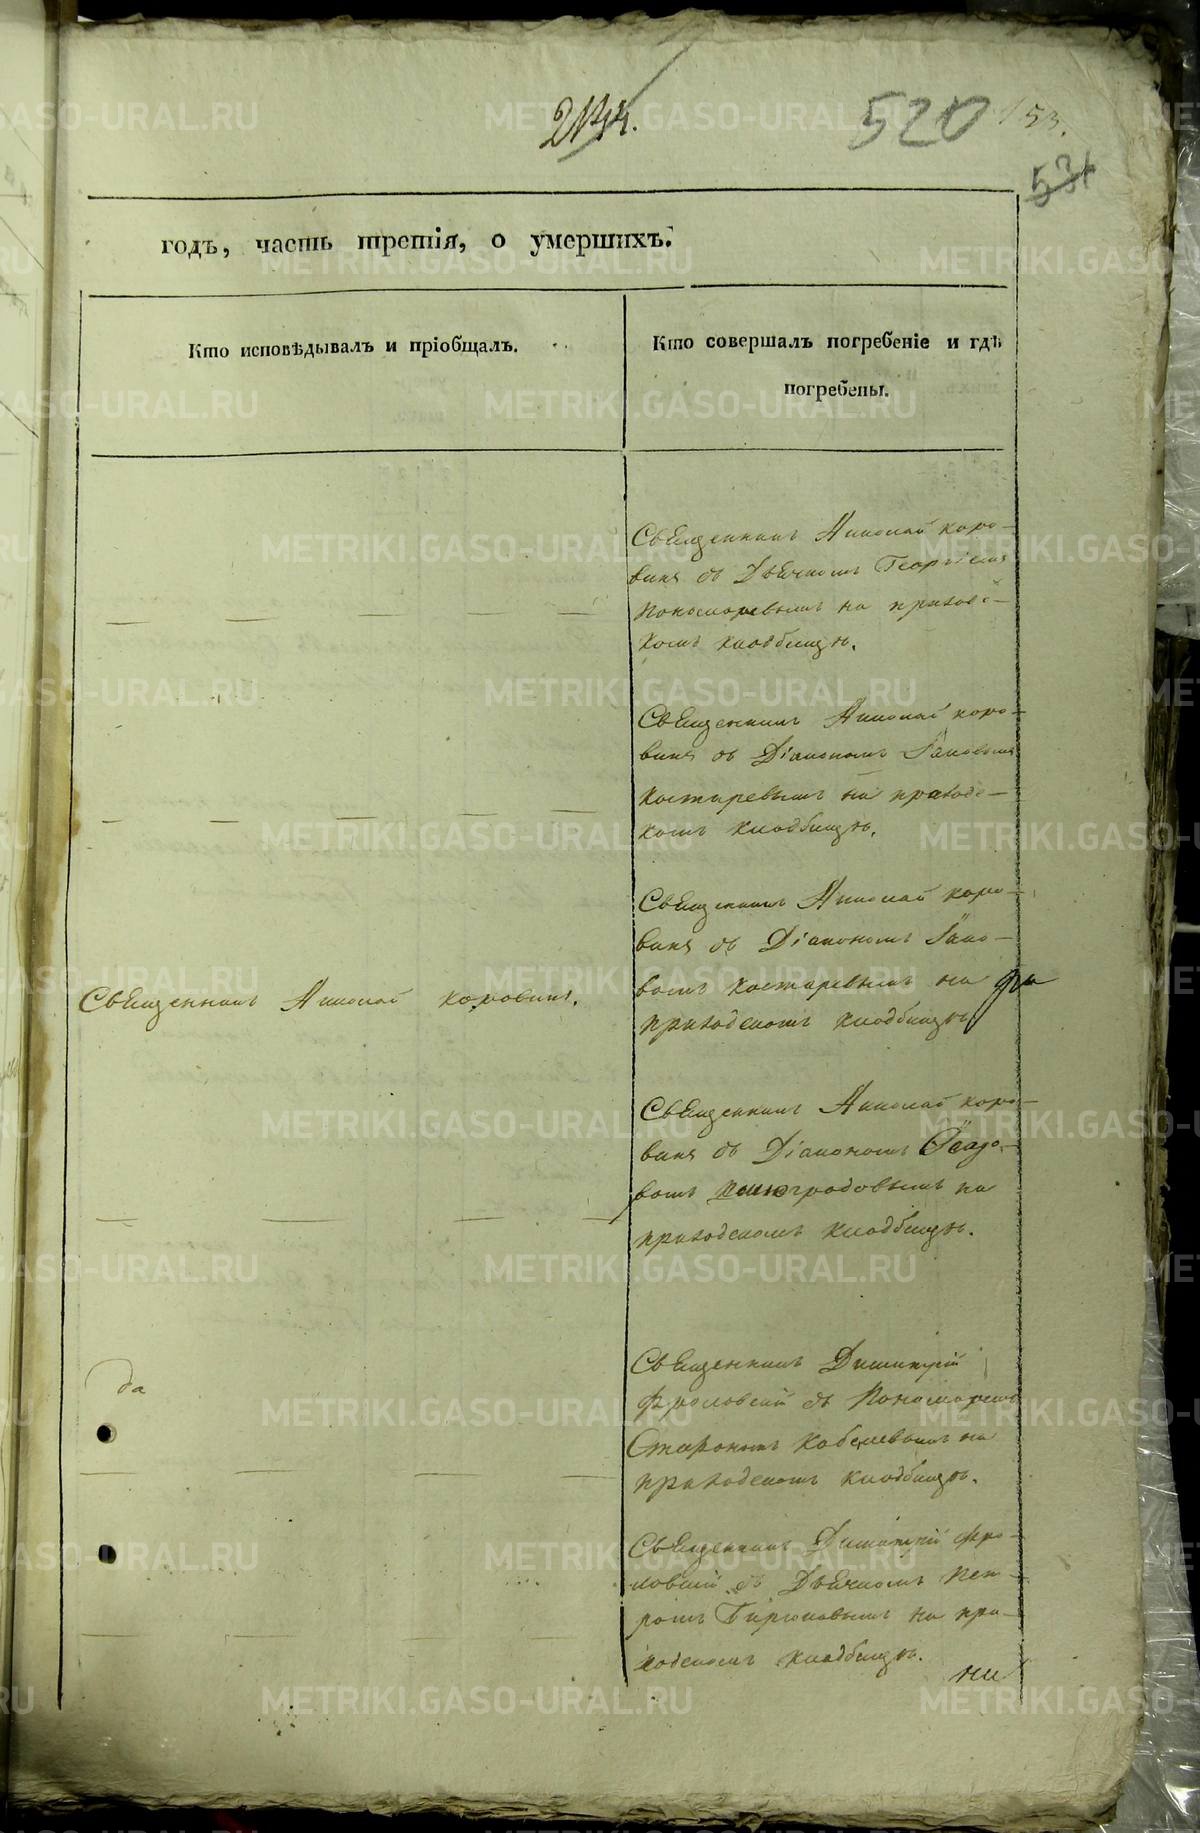 520
153.
годъ, часть третія, о умершихъ.
Кто исповѣдывалъ и пріобщалъ.
Кто совершалъ погребеніе и гдѣ
погребены.
Священникъ Николай Коро-
винъ съ Дьячкомъ Георгіемъ
Пономаревымъ на приход-
комъ кладбищѣ.
Священникъ Николай Коро-
винъ съ Діакономъ Іаковомъ
Костаревымъ на приходс-
комъ кладбищѣ.
Священникъ Николай Коровинъ.
Священникъ Николай Коро-
винъ съ Діакономъ Іако-
вомъ Костаревымъ на
приходскомъ кладбищѣ
Священникъ Николай Коро-
винъ съ Діакономъ
вомъ на
приходскомъ кладбищѣ.
Священникъ Димитрій
Фроловскій съ Пономаремъ
Кобелевымъ на
приходскомъ кладбищѣ.
Священникъ Димитрій Фро-
ловскій съ Дьячкомъ Пет-
ромъ Бирюковымъ на при-
ходскомъ кладбищѣ.
METRIKI.GASO-URAL.RU